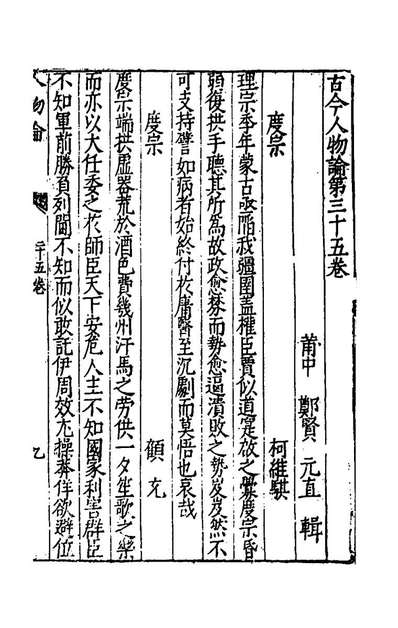 古今人物論第三十五卷
莆中 鄭賢 元直 輯
度宗 柯維騏
理宗季年蒙古亟削我疆圉蓋權臣賈似道寔啟之釁度宗昏
弱復拱手聽其所為故政愈棼而勢愈逼潰敗之勢岌岌然不
可支持譬如病者始終付於庸醫至沉劇而莫悟也哀哉
度宗 顧充
度宗端拱虛器荒於酒色費幾州汗馬之勞供一夕笙歌之樂
而亦以大任委之於師臣天下安危人主不知國家利害群臣
不知軍前勝負列閫不知而似敢託伊周效尤操莽佯欲避位
人物論 三十五卷 乙